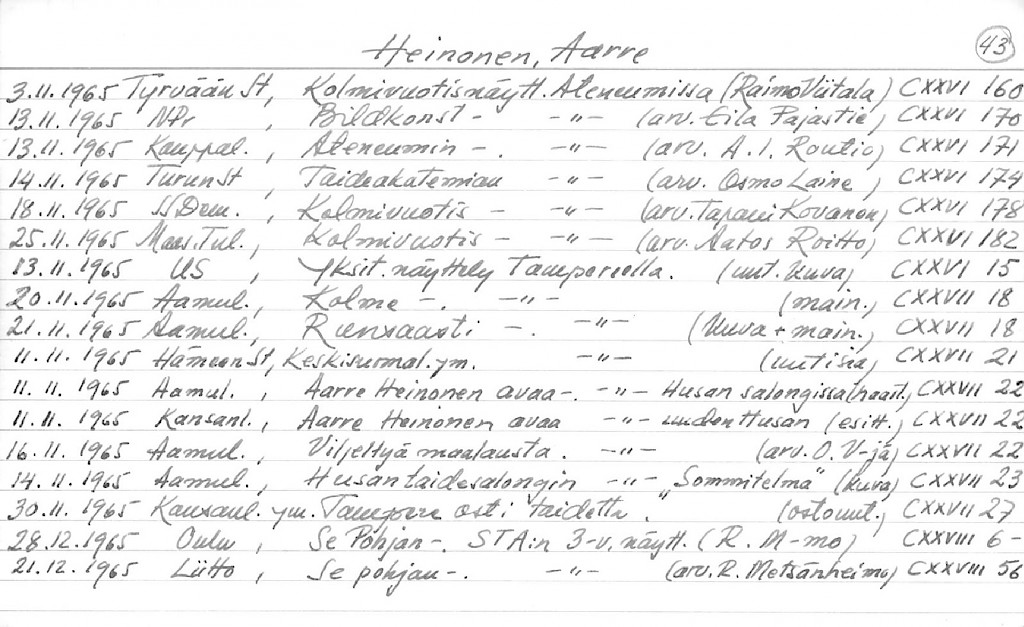 Heinonen, Aarre 43
3.11.1965 Tyrvään St, Kolmivuotisnäytt. Ateneumissa (Raimo Viitala) CXXVI 160
13.11.1965 NPr, Bildkonst - -"- (arv. Eila Pajastie) CXXVI 170
13.11.1965 Kauppal., Ateneumin -. -"- (arv. A.I. Routio) CXXVI 171
14.11.1965 Turun St, Taideakatemian -"- (arv. Osmo Laine) CXXVI 174
18.11.1965 SSDem., Kolmivuotis - -"- (arv. Tapani Kovanen) CXXVI 178
25.11.1965 Maas. Tul., Kolmivuotis - -"- (arv. Aatos Roitto) CXXVI 182
13.11.1965 US, Yksit. näyttely Tampereella. (uut. kuva) CXXVI 15
20.11.1965 Aamul., Kolme -. -"- (main.) CXXVII 18
21.11.1965 Aamul., Runsaasti -. -"- (kuva + main.) CXXVII 18
11.11.1965 Hämeen St, Keskisuomal. ym. -"- (uutisia) CXXVII 21
11.11.1965 Aamul., Aarre Heinonen avaa -. -"- Husan salongissa CXXVII 22
11.11.1965 Kansanl., Aarre Heinonen avaa -"- uuden Husan (esitt.) CXXVII 22
16.11.1965 Aamul., Viljeltyä maalausta. -"- (arv. O. V-jä) CXXVII 22
14.11.1965 Aamul., Husan taidesalongin -"- "Sommitelma" (kuva) CXXVII 23
30.11.1965 Kansanl. ym. Tampere osti taidetta. (ostouut.) CXXVII 27
28.12.1965 Oulu, Se Pohjan -. STA:n 3-v. näytt. (R. M-mo) CXXVIII 6-
21.12.1965 Liitto, Se pohjan -. -"- (arv. R. Metsänheimo) CXXVIII 56